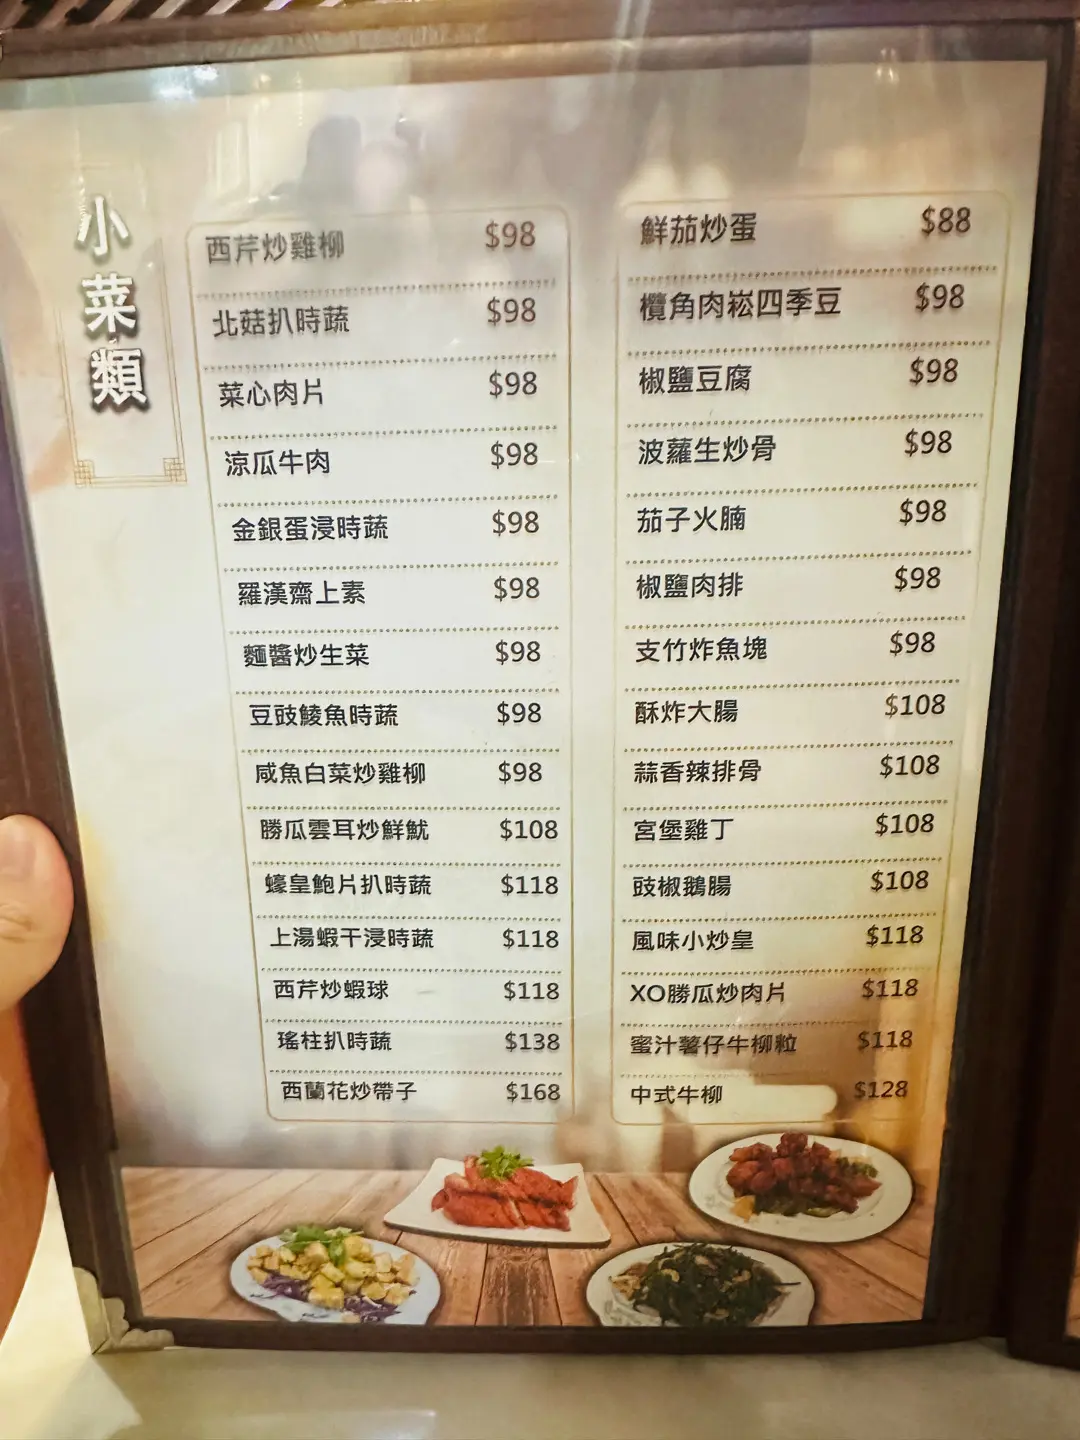 小菜類
西芹炒雞柳 $98
北菇扒時蔬 $98
菜心肉片 $98
涼瓜牛肉 $98
金銀蛋浸時蔬 $98
羅漢齋上素 $98
麵醬炒生菜 $98
豆豉鯪魚時蔬 $98
咸魚白菜炒雞柳 $98
勝瓜雲耳炒鮮魷 $108
蠔皇鮑片扒時蔬 $118
上湯蝦干浸時蔬 $118
西芹炒蝦球 $118
瑤柱扒時蔬 $138
西蘭花炒帶子 $168
鮮茄炒蛋 $88
欖角肉崧四季豆 $98
椒鹽豆腐 $98
波蘿生炒骨 $98
茄子火腩 $98
椒鹽肉排 $98
支竹炸魚塊 $98
酥炸大腸 $108
蒜香辣排骨 $108
宮堡雞丁 $108
豉椒鵝腸 $108
風味小炒皇 $118
XO勝瓜炒肉片 $118
蜜汁薯仔牛柳粒 $118
中式牛柳 $128